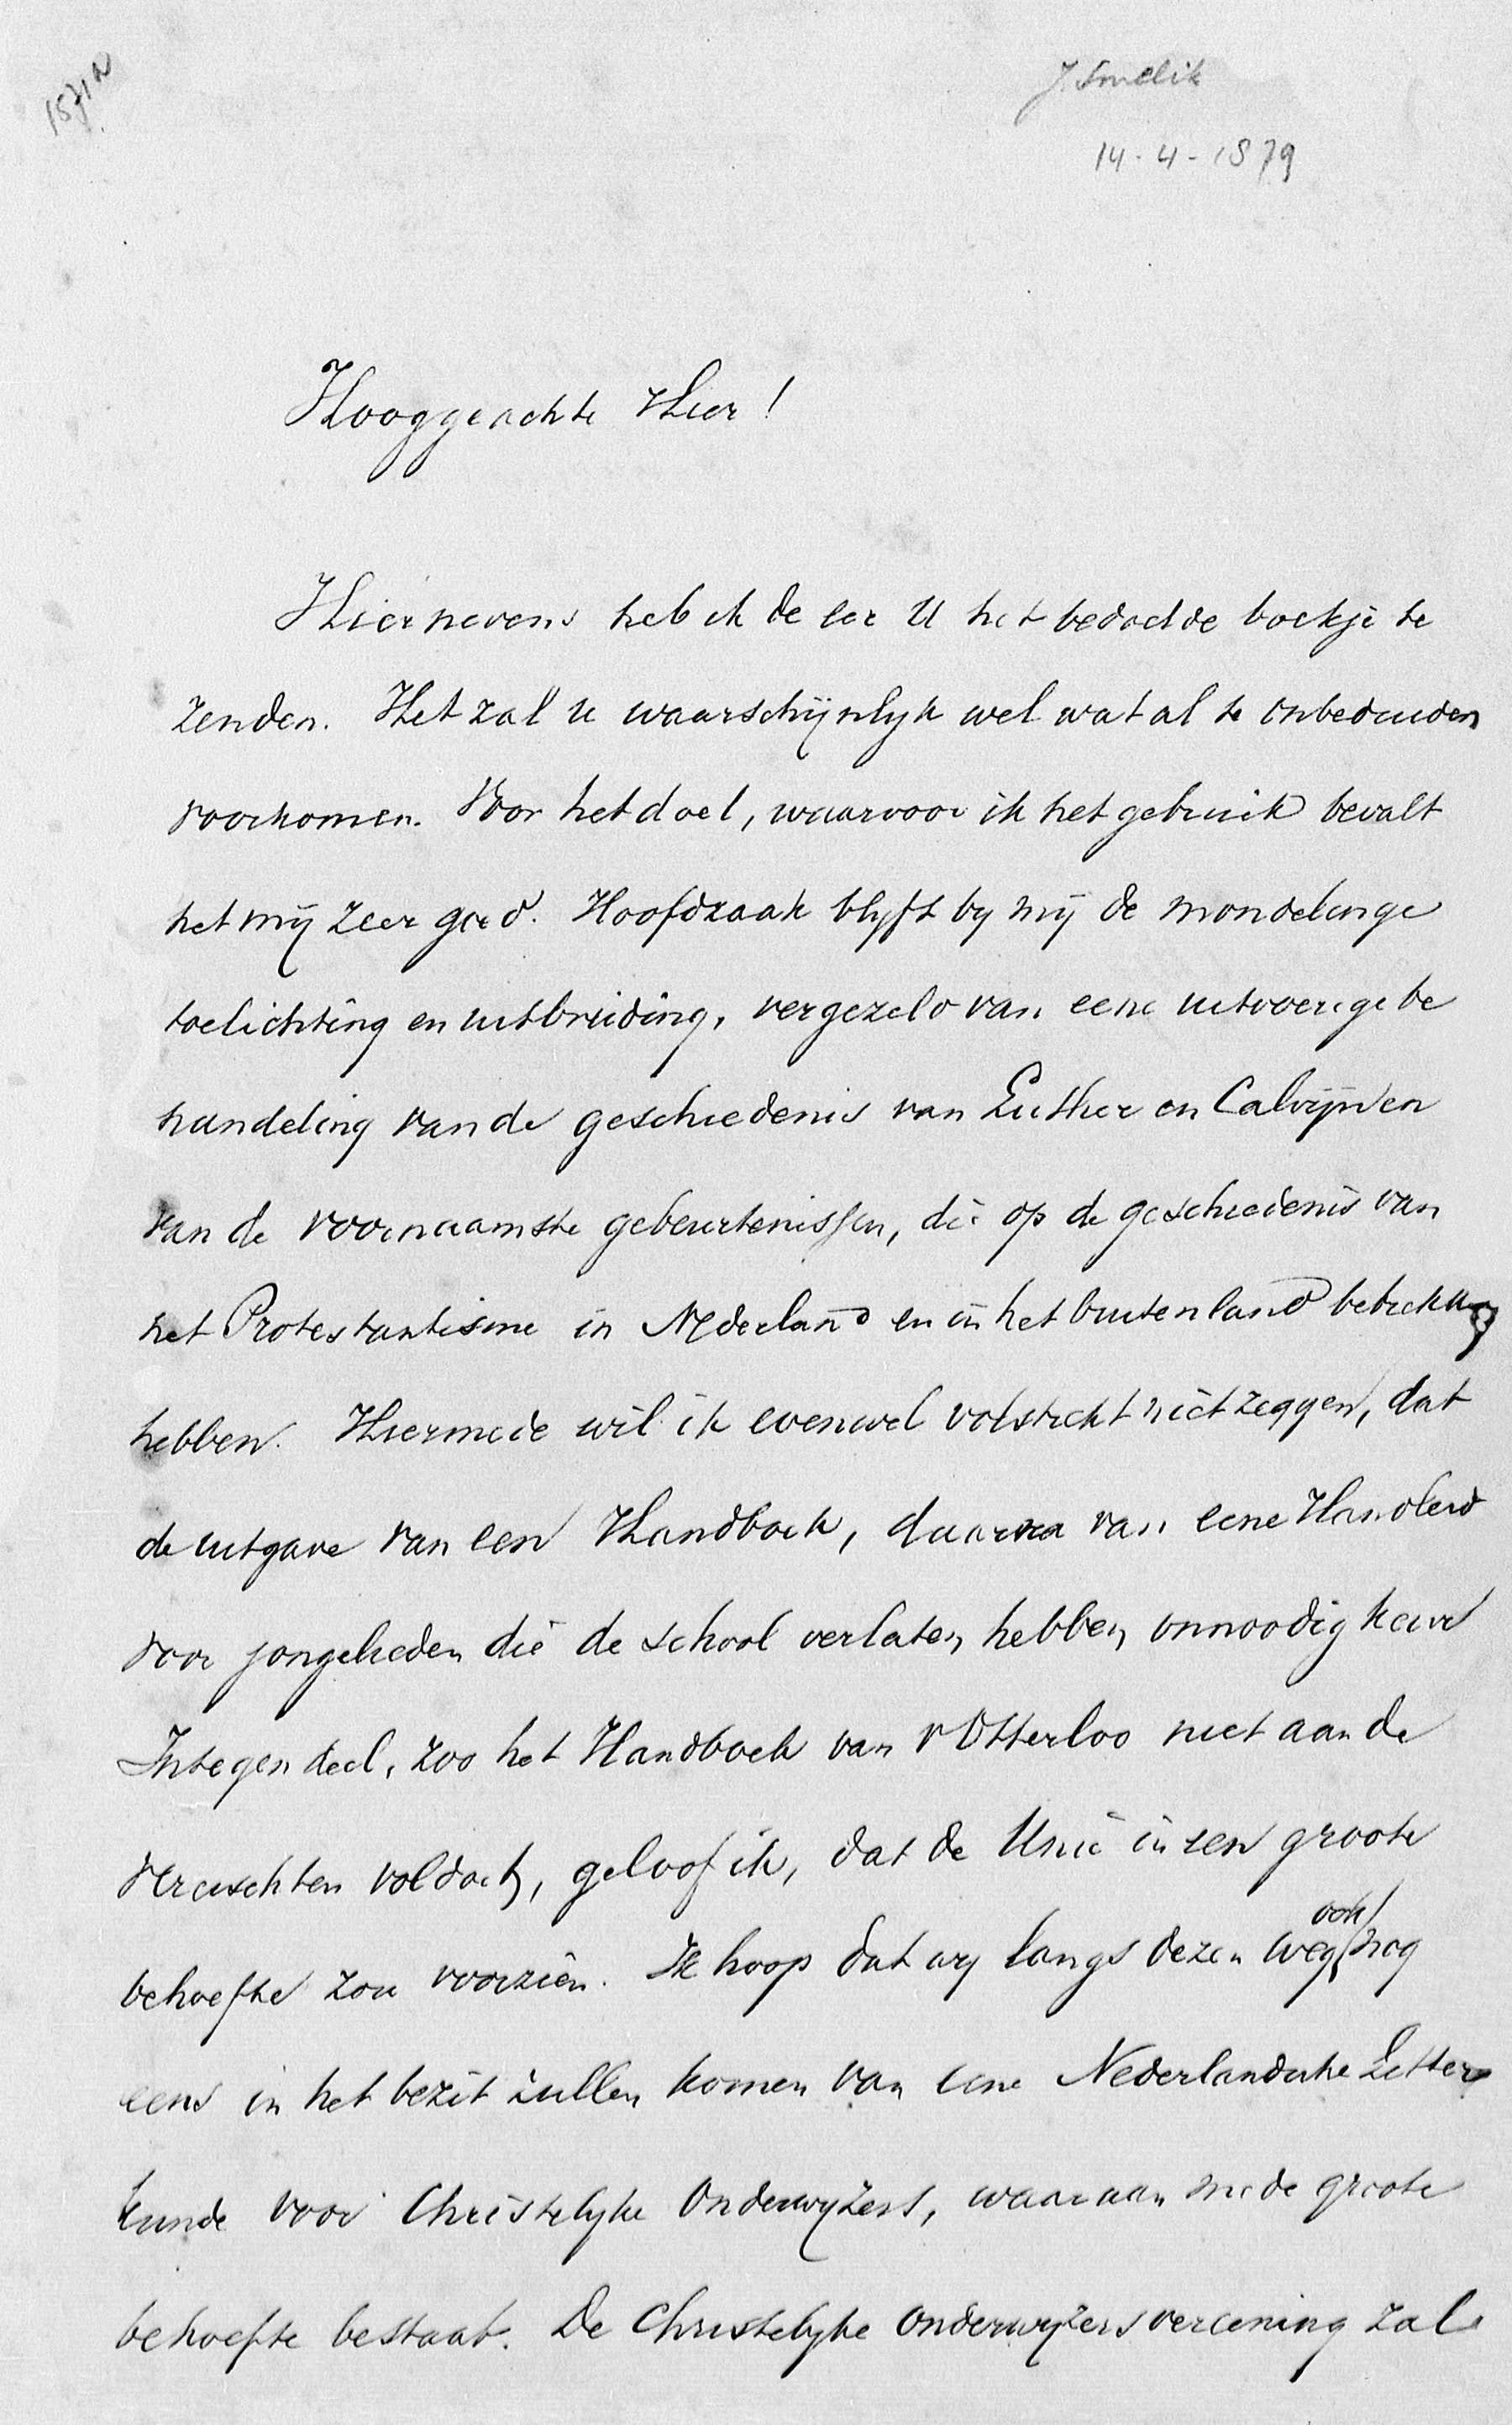 1571a
J. Smelik
14-4-1879
Hooggeachte Heer!
Hiernevens heb ik de eer U het bedoelde boekje te
zenden. Het zal u waarschijnlyk wel wat al te onbeduiden
voorkomen. Voor het doel, waarvoor ik het gebruik bevalt
het mij zeer goed. Hoofdzaak blyft by mij de mondelinge
toelichting en uitbreiding, vergezeld van eene uitvoerige be
handeling van de geschiedenis van Luther en Calvijn en
van de voornaamste gebeurtenissen, die op de geschiedenis van
het Protestantisme in Nederland en in het buitenland betrekking
hebben. Hiermede wil ik evenwel volstrekt niet zeggen, dat
de uitgave van een Handboek, daarna van eene Handleid
voor jongelieden die de school verlaten hebben onnoodig keur
Integendeel, zoo het Handboek van v Otterloo niet aan de
vereischten voldoet, geloof ik, dat de Unie in een groote
behoefte zou voorzien. Ik hoop dat wy langs dezen weg ook nog
eens in het bezit zullen komen van eene Nederlandsche Letter
kunde voor Christelyke Onderwyzers, waaraan mede groote
behoefte bestaat. De Christelyke onderwyzersvereening zal